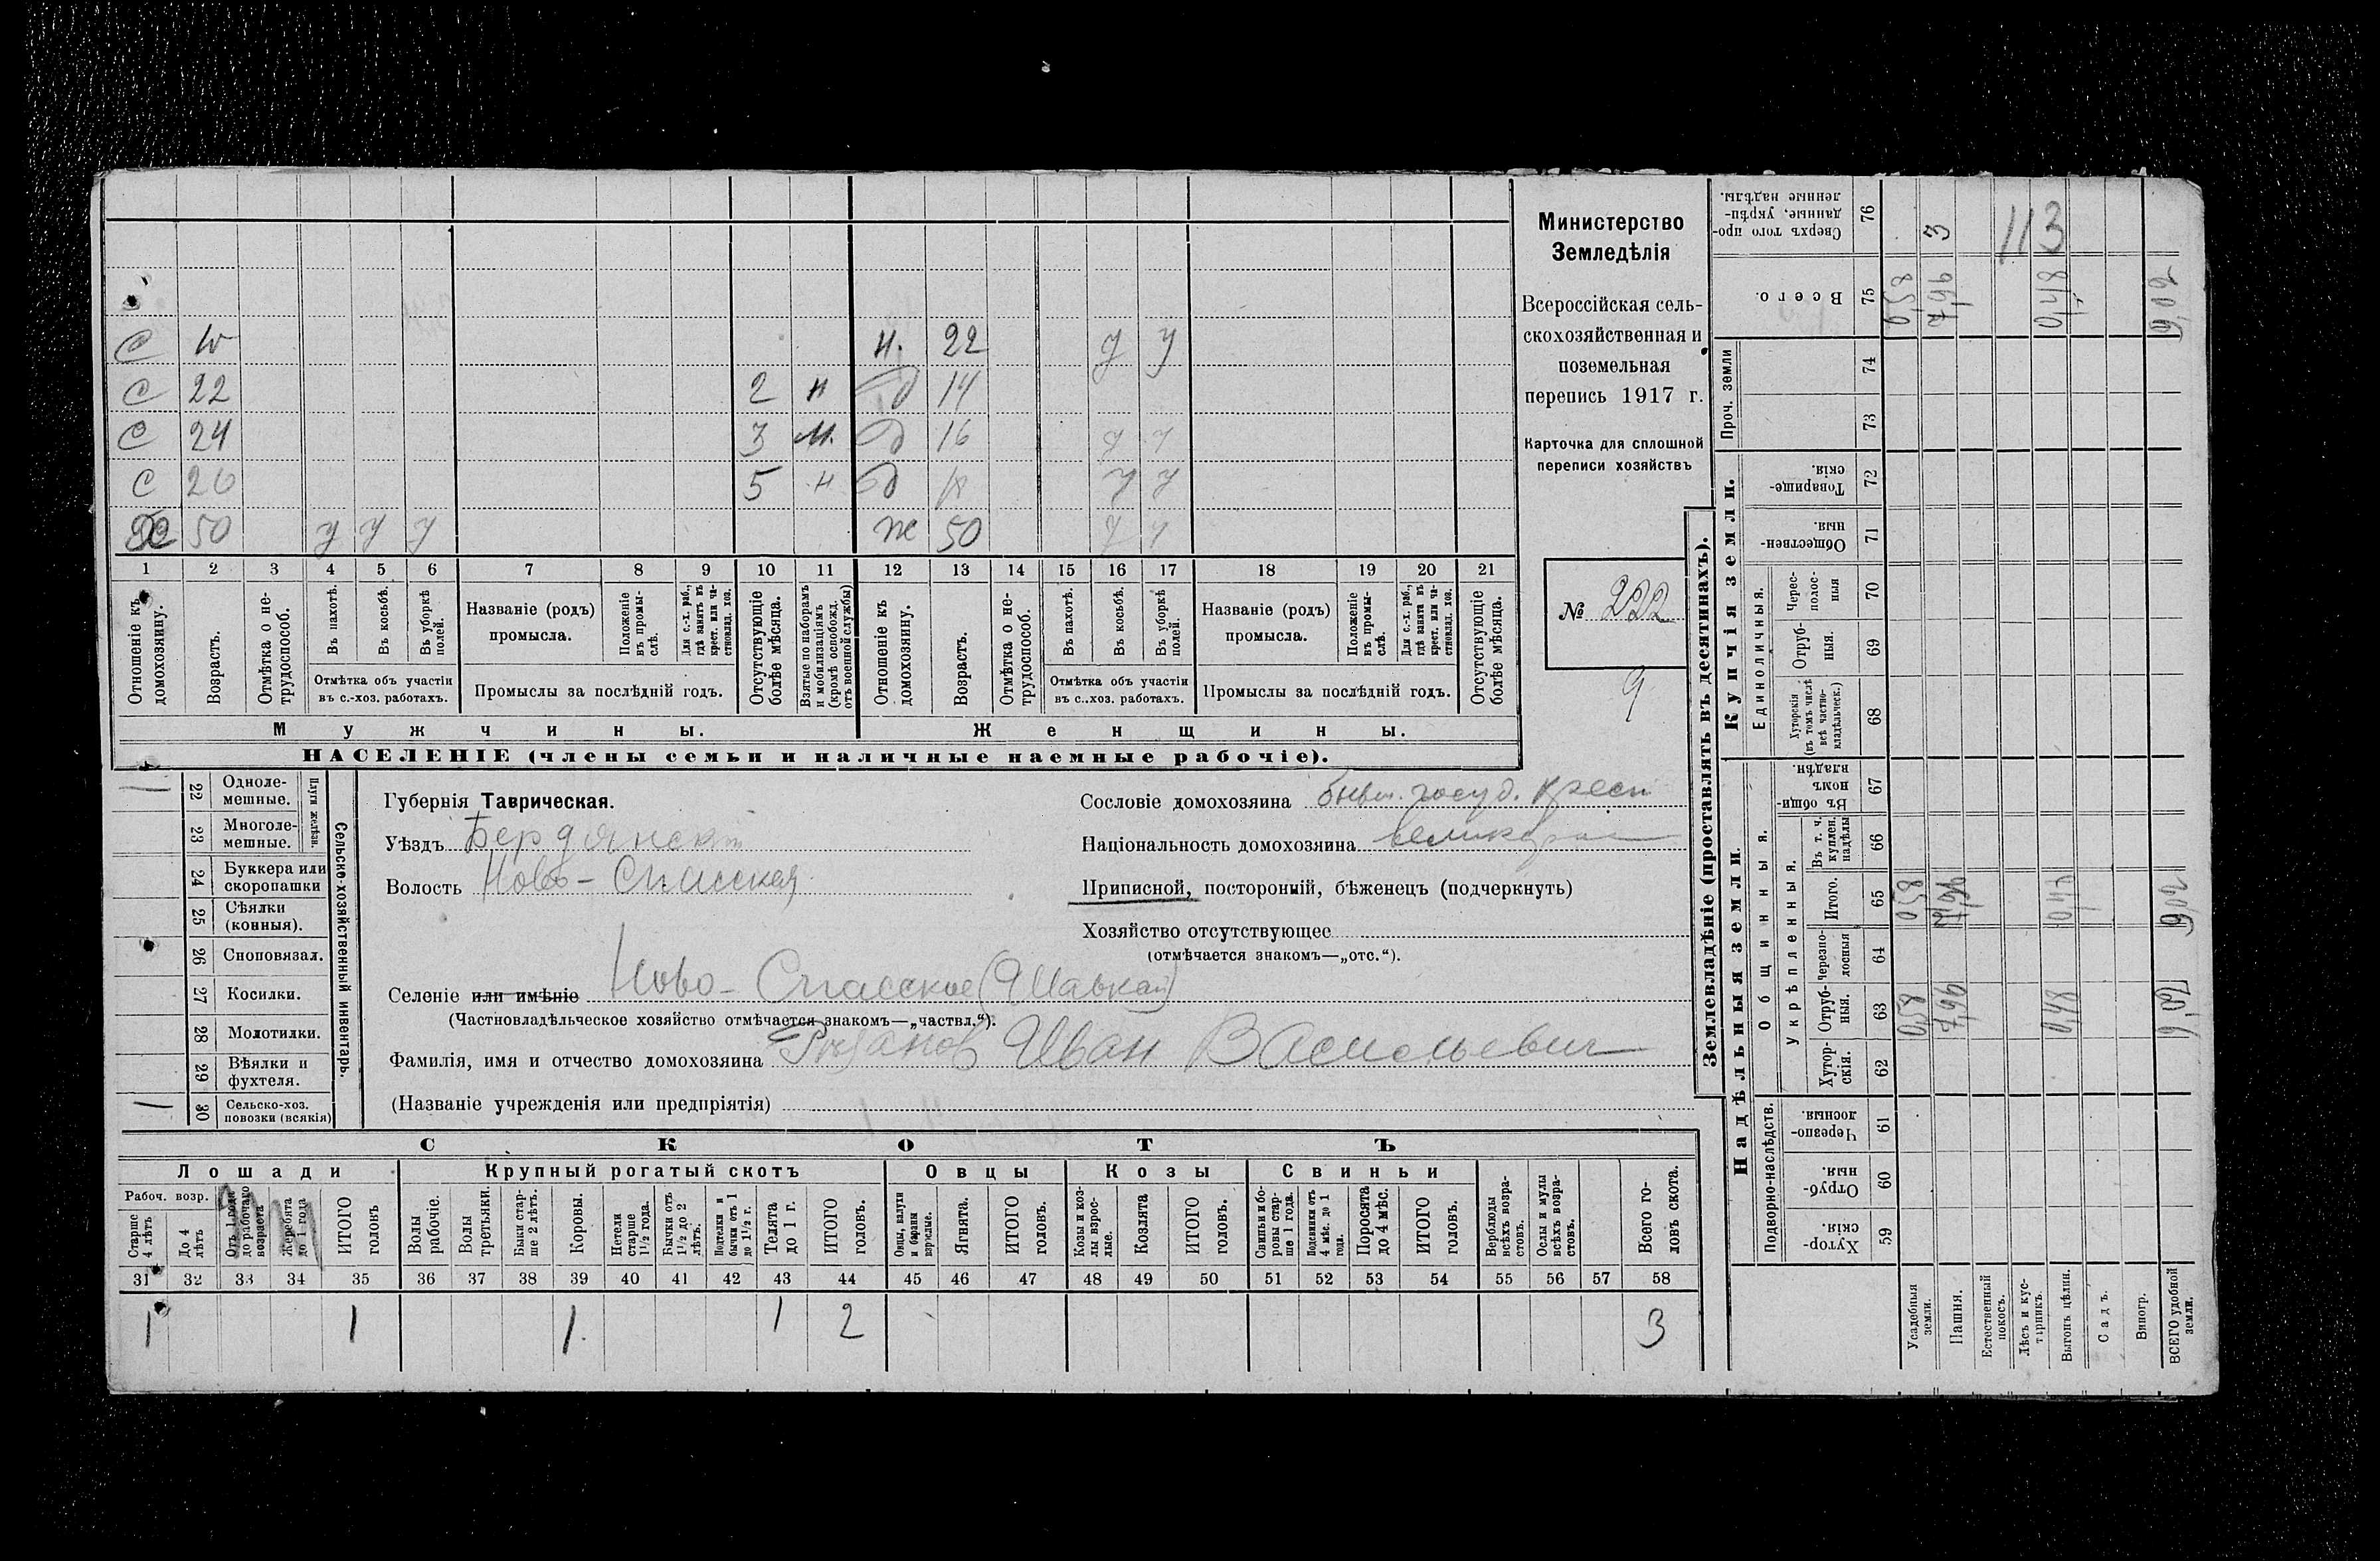 С 10 н. 22 у у
С 22 2 н д 14
С 24 3 н. д 16 у у
С 26 5 н д 18 у у
50 у у у ж 50 у у
1 2 3 4 5 6 7 8 9 10 11 12 13 14 15 16 17 18 19 20 21
Отношеніе къ домохозяину.
Возрастъ.
Отмѣтка о не-
трудоспособ.
Въ пахотѣ.
Въ косьбѣ.
Въ уборкѣ
полей.
Отмѣтка объ участіи
въ с.-хоз. работахъ.
Названіе (родъ)
промысла.
Положеніе
въ промы-
слѣ.
Для с.-х. раб.,
гдѣ занятъ въ
крест. или ча-
стновлад. хоз.
Промыслы за послѣдній годъ.
Отсутствующіе
болѣе мѣсяца.
Взятые по наборамъ
и мобилизаціямъ
(кромѣ освобожд.
отъ военной службы)
Отношеніе къ
домохозяину.
Возрастъ.
Отмѣтка о не-
трудоспособ.
Въ пахотѣ.
Въ косьбѣ.
Въ уборкѣ
полей.
Отмѣтка объ участіи
въ с..хоз. работахъ.
Названіе (родъ)
промысла.
Положеніе
въ промы-
слѣ.
Для с.-х. раб.,
гдѣ занята въ
крест. или ча-
стновлад. хоз.
Промыслы за послѣдній годъ.
Отсутствующіе
болѣе мѣсяца.
Мужчины.
Женщины.
НАСЕЛЕНІЕ (члены семьи и наличные наемные рабочіе).
Министерство
Земледѣлія
Всероссійская сель-
скохозяйственная и
поземельная
перепись 1917 г.
Карточка для сплошной
переписи хозяйствъ
№ 222
9
1 22 Одноле-
мешные.
23 Многоле-
мешные.
Плуги желѣзн.
24 Буккера или
скоропашки
25 Сѣялки
(конныя).
26 Сноповязал.
27 Косилки.
28 Молотилки.
29 Вѣялки и
фухтеля.
1 30 Сельско-хоз.
повозки (всякія)
Сельско-хозяйственный инвентарь.
Губернія Таврическая.
Уѣздъ Бердянскій
Волость Ново-Спасская
Сословіе домохозяина бывш. госуд. крест
Національность домохозяина
Приписной, посторонній, бѣженецъ (подчеркнуть)
Хозяйство отсутствующее
(отмѣчается знакомъ—„отс.“).
Селеніе или имѣніе Ново-Спасское (Шавкай)
(Частновладѣльческое хозяйство отмѣчается знакомъ—„частвл.“).
Фамилія, имя и отчество домохозяина Иван Васильевич
(Названіе учрежденія или предпріятія)
СКОТЪ
Лошади
Крупный рогатый скотъ
Овцы
Козы
Свиньи
Рабоч. возр.
Старше
4 лѣтъ
До 4
лѣтъ
Отъ 1 года
до рабочаго
возраста
Жеребята
до 1 года
ИТОГО
головъ
Волы
рабочіе.
Волы
третьяки.
Быки стар-
ше 2 лѣтъ.
Коровы.
Нетели
старше
1½ года.
Бычки отъ
1½ до 2
лѣтъ.
Подтелки и
бычки отъ 1
до 1½ г.
Телята
до 1 г.
ИТОГО
головъ.
Овцы, валухи
и бараны
взрослые.
Ягнята.
ИТОГО
головъ.
Козы и коз-
лы взрос-
лые.
Козлята
ИТОГО
головъ.
Свиньи и бо-
ровы стар-
ше 1 года.
Подсвинки отъ
4 мѣс. до 1
года.
Поросята
до 4 мѣс.
ИТОГО
головъ.
Верблюды
всѣхъ возра-
стовъ.
Ослы и мулы
всѣхъ возра-
стовъ.
Всего го-
ловъ скота.
31 32 33 34 35 36 37 38 39 40 41 42 43 44 45 46 47 48 49 50 51 52 53 54 55 56 57 58
1 1 1 1 2 3
Землевладѣніе (проставлять въ десятинахъ).
Надѣльныя земли.
Купчія земли.
Проч. земли
Подворно-наслѣдств.
Общинныя.
Укрѣпленныя.
Единоличныя.
Хутор-
скія.
59
Отруб-
ныя.
60
Черезпо-
лосныя.
61
Хутор-
скія.
62
Отруб-
ныя.
63
Черезпо-
лосныя
64
Итого.
65
Въ т. ч.
куплен.
надѣлы
66
Въ общи-
номъ
владѣн.
67
Хуторскія
(въ томъ числѣ
всѣ частно-
владѣльческ.)
68
Отруб-
ныя.
69
Черес-
полос-
ныя
70
Обществен-
ныя
71
Товарище-
скія.
72
73
74
Всего.
75
Сверхъ того про-
данные, укрѣп-
ленные надѣлы.
76
Усадебныя
земли.
0,58 0,58 0,58
Пашня.
7,96 7,96 7,96 3
Естественный
покосъ.
Лѣсъ и кус-
тарникъ.
Выгонъ цѣлин.
0,48 0,48
Садъ.
Виногр.
ВСЕГО удобной
земли.
9,02
113